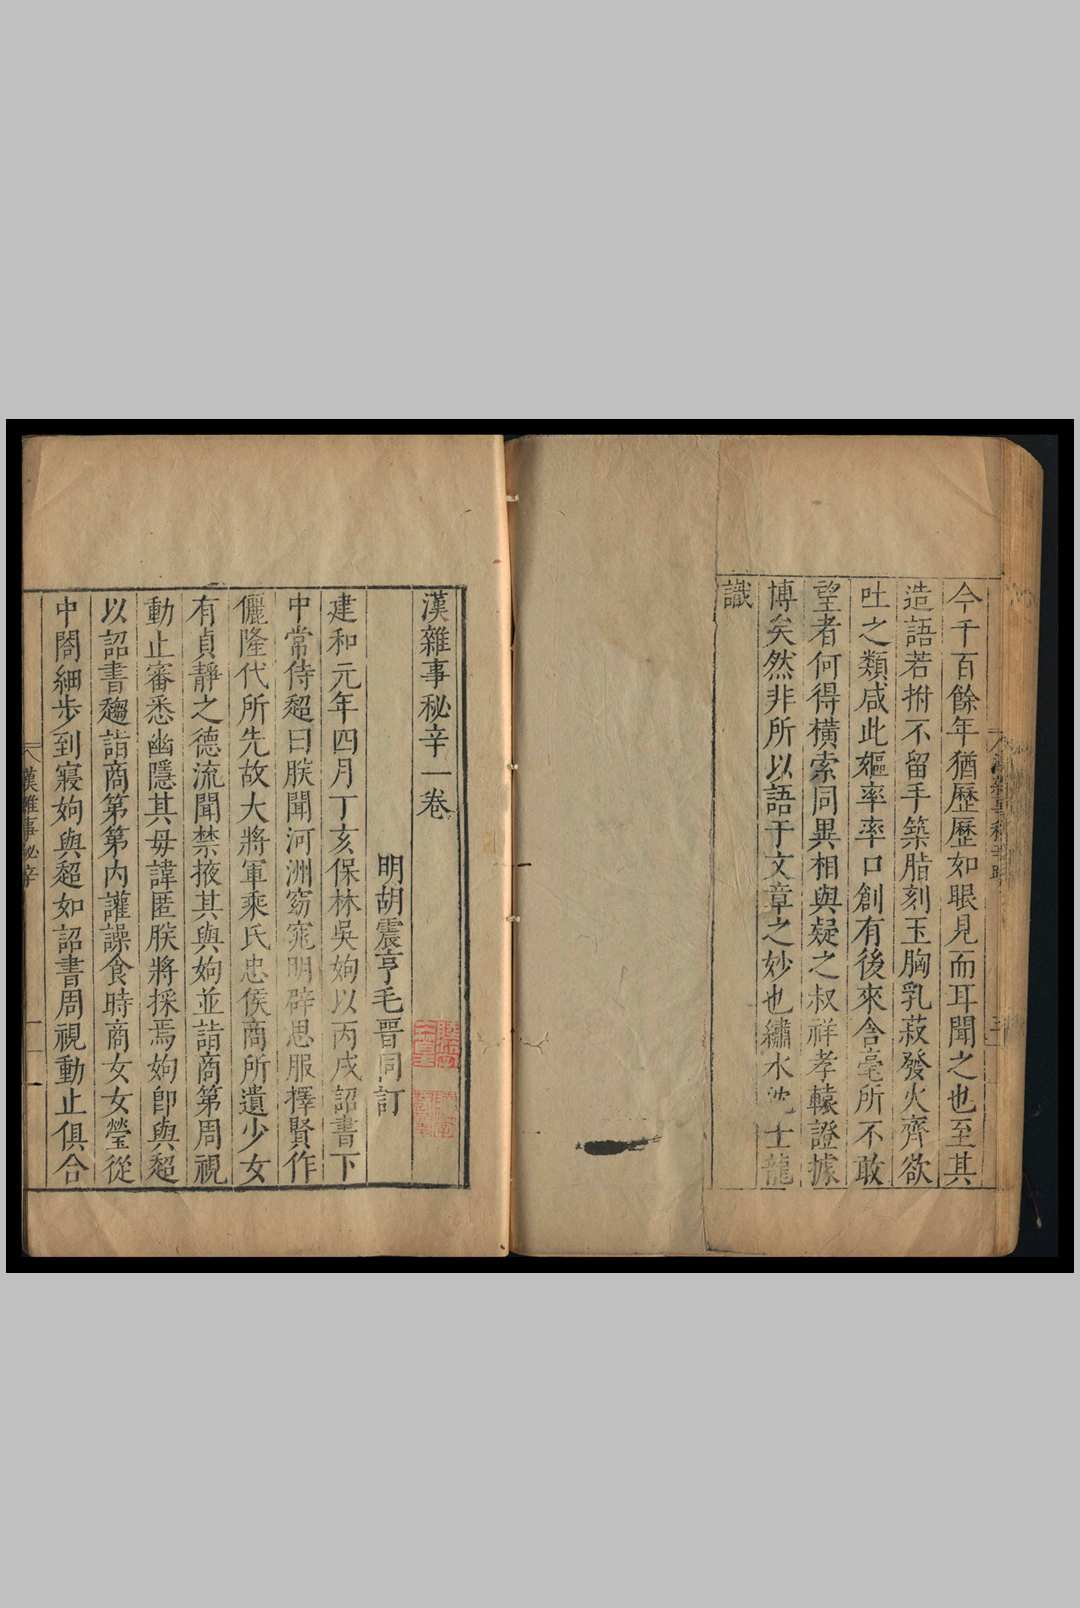 今千百餘年猶歷歷如眼見而耳聞之也至其
造語若拊不留手築脂刻玉胸乳菽發火齊欲
吐之類咸此嫗率率口創有後來含毫所不敢
望者何得橫索同異相與疑之叔祥孝轅證據
博矣然非所以語于文章之妙也繡水沈士龍
識
漢雜事秘辛一卷
明胡震亨毛晉同訂
建和元年四月丁亥保林吳姁以丙戌詔書下
中常侍超曰朕聞河洲窈窕明辟思服擇賢作
儷隆代所先故大將軍乘氏忠侯商所遺少女
有貞靜之德流聞禁掖其與姁並詣商第周視
動止審悉幽隱其毋諱匿朕將採焉姁卽與超
以詔書趨詣商第第內讙譟食時商女女瑩從
中閤細步到寢姁與超如詔書周視動止俱合
漢雜事秘辛
一